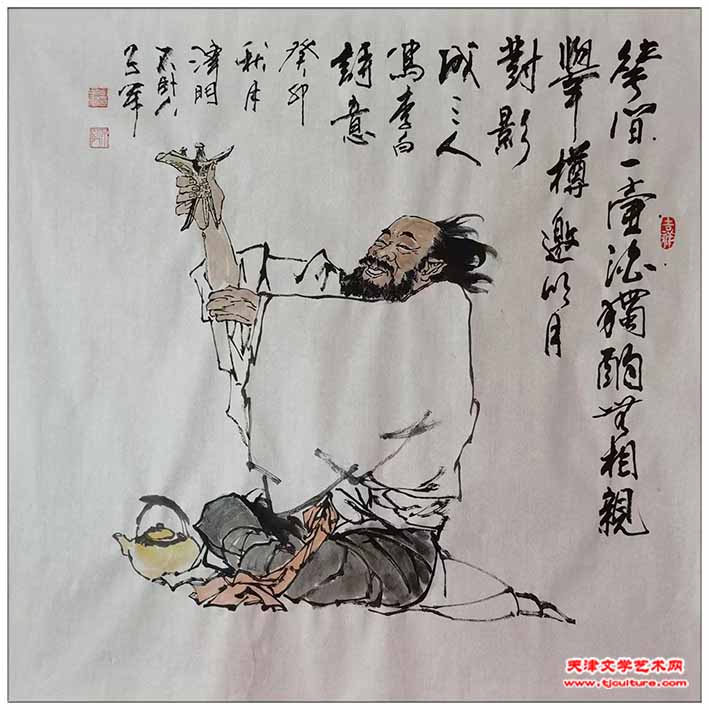 花間一壺酒獨酌無相親
舉樽邀明月
對影
成三人
寫李白
詩意
癸卯
秋月
津門
吉祥
天津文学艺术网
www.tjculture.com